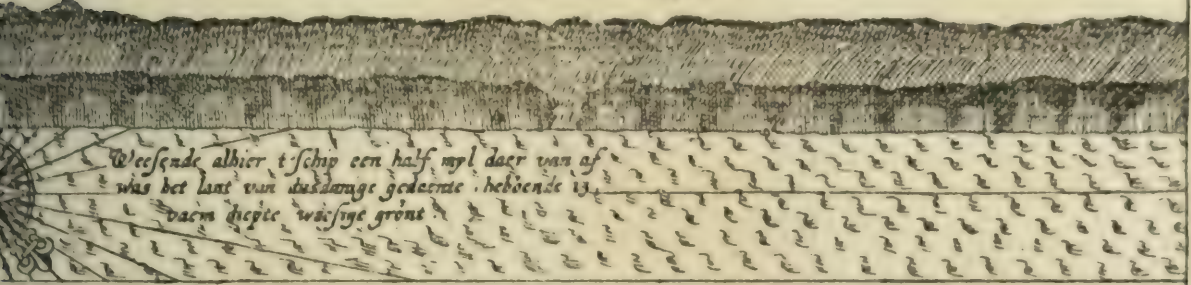 Weesende alhier t'schip een half myl daer van af
was het lant van dusdanige gedeente, hebbende 13
vaem diepte, wasige gront